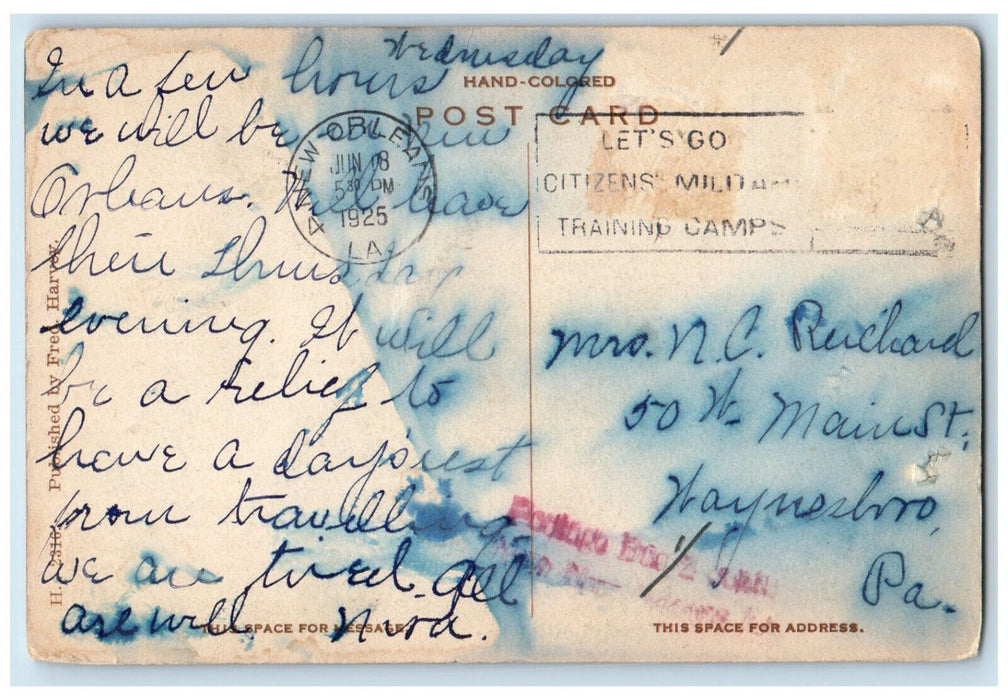 Wednesday
In a few hours
we will be in New
Orleans. Will leave
there Thursday
evening. It will
be a relief to
have a day's rest
from travelling
we are tired. All
are well. Nora.
HAND-COLORED
POST CARD
NEW ORLEANS
JUN 18
5 30 PM
1925
LA.
LET'S GO
CITIZENS' MILITA
TRAINING CAMPS
Mrs. N. C. Reichard
50 W. Main St.
Waynesboro,
Pa.
Postage Due 2
Published by Fred. Harvey
THIS SPACE FOR MESSAGE.
THIS SPACE FOR ADDRESS.